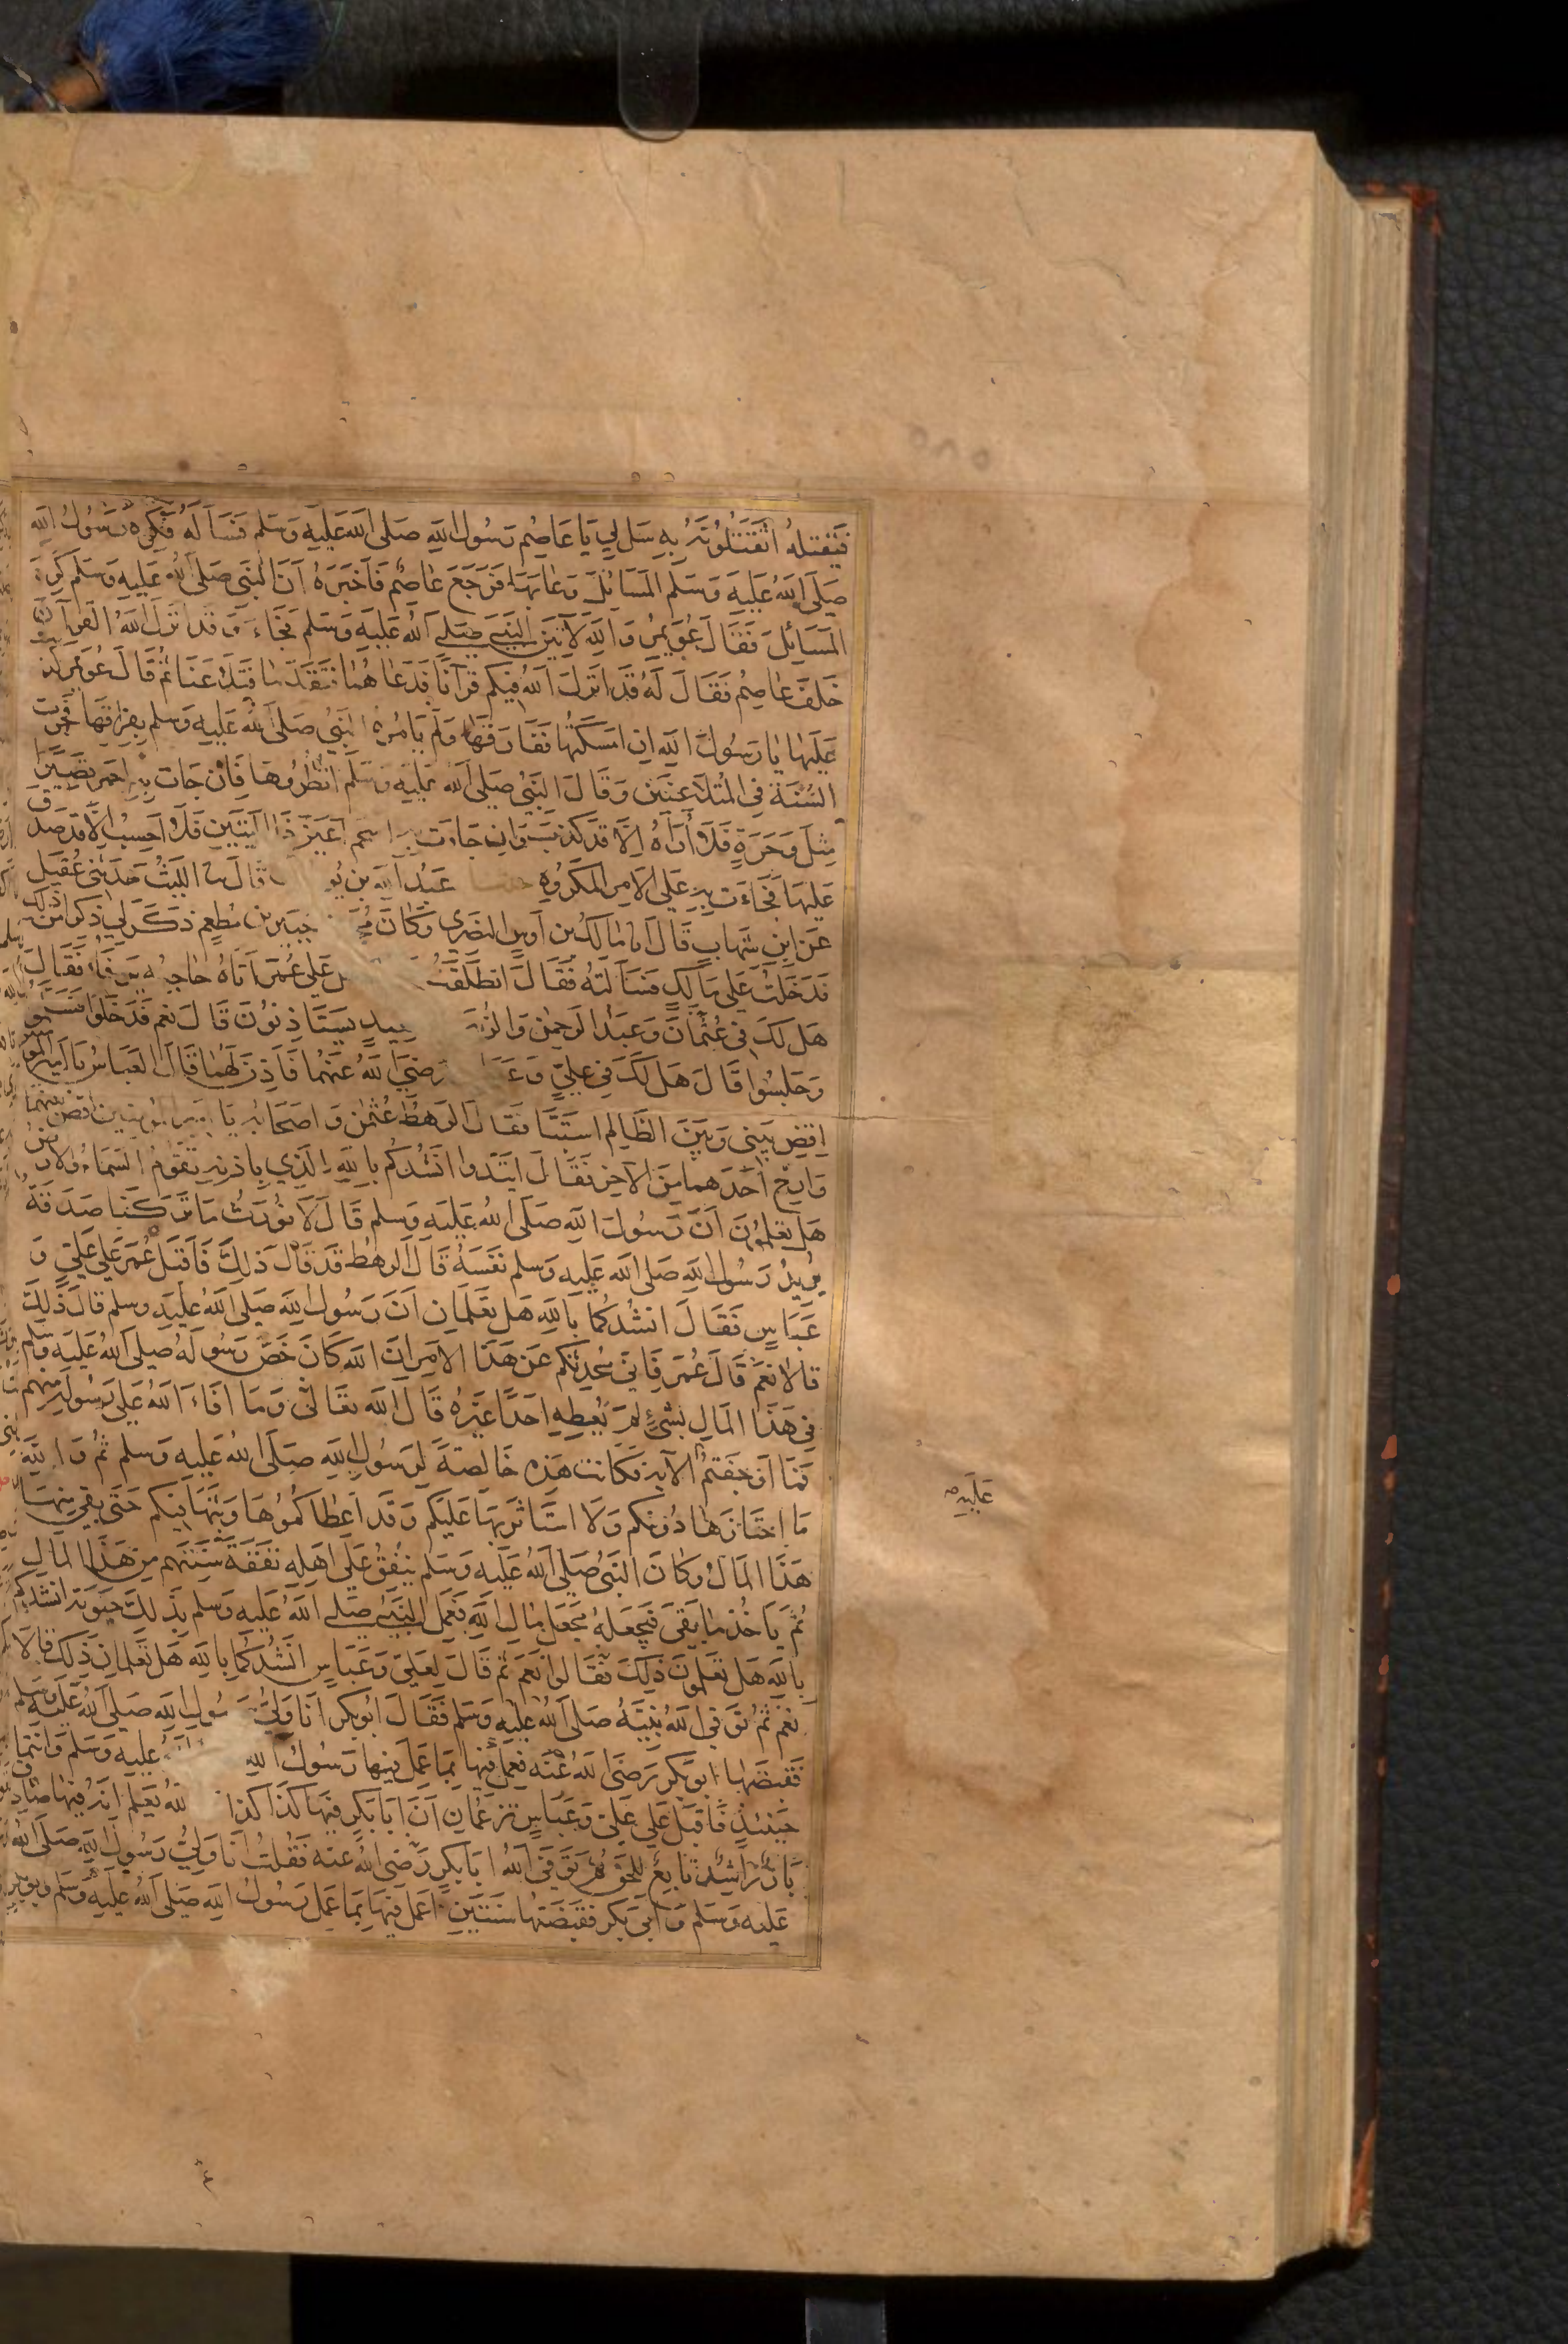 فَيَقتلهُ اَتَقتُلُونَهُ بِهِ سَل لِي يَا عَاصِمُ رَسُولَ اللهِ صَلى الله عَليهِ وَسَلم فَسَأَلَهُ فَكَرِهَ رَسُولُ اللهِ
صَلَى اللهُ عَليهِ وَسَلَم المَسَائلَ وَعَابَهَا فَرَجَعَ عَاصمٌ فَاَخبَرَهُ اَنَّ النَبى صَلى اللهُ عَليهِ وَسَلم كَرِهَ
المَسَائِلَ فَقَالَ عُوَيمِرُ وَاللهِ لَآتِيَنَّ النَبِيَّ صَلى اللهُ عَليهِ وَسَلم فَجَاءَ وَقَد اَنزَلَ اللهُ القرآنَ
خَلفَ عَاصِمٍ فَقَالَ لَهُ قَد اَنزَلَ اللهُ فِيكم قرآنًا فَدَعَا هُمَا فَتَقَدَّمَا فَتَلَاعَنَا ثم قَالَ عُوَيمر كذبت
عَلَيهَا يَا رَسُولَ اللهِ اِن اَمسَكتُهَا فَفَارَقَهَا وَلَم يَأمُرهُ النَبيُّ صَلى اللهُ عَليهِ وَسلم بِفِرَاقهَا فَجَرت
السُنَةُ فِي المُتَلَاعِنَينِ وَقَالَ النَبيُّ صَلى اللهُ عَليهِ وَسَلَم انظُرُوهَا فَاِن جَاءت بِهِ احمَر قصيرًا
مِثلَ وَحَرَةٍ فَلَا اُرَاهُ اِلَّا قَد كَذبَ وَاِن جَاءَت بِهِ اسحَم اَعيَنَ ذَا اليَتَينِ فَلَا اَحسِبُ اِلَّا قَد صَدَقَ
عَليهَا فَجَاءَت بِهِ عَلَى الاَمرِ المَكرُوهِ حدثنا عَبدُ اللهِ بن يُو قَالَ نا اللَيثُ حَدَثَنِي عُقَيل
عَن ابنِ شِهَابٍ قَالَ انا مَالكُ بن اَوسٍ النَصَرِي وَكَانَ مُحَ جُبَيرِ بنِ مُطعِمٍ ذَكَرَ لِي ذكرا مِن ذلك
فَدَخَلتُ عَلَى مَالِكٍ فَسَأَلتُهُ فَقَالَ انطَلَقتُ ل عَلَى عُمَرَ اَتَاهُ حَاجِبُهُ يَرفَا فَقَالَ
هَل لَكَ فِي عُثمَانَ وَعَبدِ الرَحمٰنِ وَالزُبَ ـعيدٍ يَستَأذِنُونَ قَالَ نَعَم فَدَخَلُوا فَسَلموا
وَجَلَسُوا قَالَ هَل لَكَ فِي عَليٍّ وَعَبَا رَضيَ اللهُ عَنهُمَا فَاَذِنَ لَهُمَا قَالَ العَبَاسُ يَا اَمِيرَ المو
اقضِ بَينِي وَبَينَ الظَالِمِ استَبَّا فَقَالَ الرَهطُ عُثمٰنُ وَاَصحَابُهُ يَا اَمِيرَ المؤمنين اقض بينهما
وَارِح اَحَدَهمَا مِنَ الآخرِ فَقَالَ اتَّئِدُوا اَنشُدُكُم بِاللهِ الَذِي بِاِذنِهِ تَقُومُ السَمَاءُ وَالارضُ
هَل تَعلَمُونَ اَنَّ رَسُولَ اللهِ صَلى اللهُ عَليهِ وَسلم قَالَ لَا نُورَثُ مَا تَرَكنَا صَدَقَةٌ
يُرِيدُ رَسُولُ اللهِ صَلى الله عَليهِ وَسلم نَفسَهُ قَالَ الرَهطُ قَد قَالَ ذَلِكَ فَاَقبَلَ عُمَرُ عَلى عَلِيٍّ وَ
عَبَاسٍ فَقَالَ اَنشُدُكُمَا بِاللهِ هَل تَعلَمَانِ اَنَّ رَسُولَ اللهِ صَلى اللهُ عَليهِ وسلم قَالَ ذَلِكَ
قَالَا نَعَم قَالَ عُمَر فَاِنِّي مُحَدِثُكُم عَن هَذَا الاَمرِ اِنَّ اللهَ كَانَ خَصَّ رَسُولَهُ صَلى اللهُ عَليهِ وَسلم
فِي هَذَا المَالِ بِشَيءٍ لَم يُعطِهِ اَحَدًا غَيرَهُ قَالَ اللهُ تعَالَى وَمَا اَفَاءَ اللهُ عَلَى رَسُولِهِ مِنهُم
فَمَا اَوجَفتم الآيةَ فَكَانَت هَذِهِ خَالِصَةً لِرَسُولِ اللهِ صَلى اللهُ عَليهِ وسلم ثُمَّ وَاللهِ
مَا احتَازَهَا دُونَكم وَلَا استَأثَرَ بِهَا عَلَيكُم وَقَد اَعطَاكُمُوهَا وَبَثَّهَا فِيكم حَتَّى بَقِيَ مِنهَا
هَذَا المَالُ وَكَانَ النَبيُّ صَلى اللهُ عَليهِ وَسَلم يُنفِقُ عَلَى اَهلِهِ نَفَقَةَ سَنَتِهِم مِن هَذَا المَالِ
ثُمَّ يَأخُذُ مَا بَقِيَ فَيَجعَلهُ مَجعَلَ مَالِ اللهِ فَعَمِلَ النَبيُّ صَلى اللهُ عَليهِ وَسلم بِذَلِكَ حَيَوتَهُ انشدكم
بِاللهِ هَل تَعلَمُونَ ذَلِكَ فَقَالُوا نَعَم ثُم قَالَ لِعَلِيٍّ وَعَبَاسٍ اَنشُدُكُمَا بِاللهِ هَل تَعلَمَانِ ذَلِكَ قَالَا
نَعَم ثُمَّ تَوَفَّى اللهُ نَبِيَّهُ صَلى اللهُ عَليهِ وَسلم فَقَالَ اَبُو بَكرٍ اَنَا وَلِيُّ رَسُولِ اللهِ صَلى اللهُ عَليهِ وسلم
فَقَبَضَهَا اَبُو بَكرٍ رَضيَ اللهُ عَنهُ فعَمِلَ فِيهَا بِمَا عَمِلَ فِيهَا رَسُولُ اللهِ عليهِ وَسَلم وَاَنتُمَا
حِينَئِذٍ فَاَقبَلَ عَلَى عَلِيٍّ وَعَبَاسٍ تَزعُمَانِ اَنَّ اَبَا بَكرٍ فِيهَا كَذَا كَذَا اللهُ يَعلَمُ اَنَّهُ فِيهَا صَادِقٌ
بَارٌّ رَاشِدٌ تَابِعٌ لِلحَقِّ ثُمَّ تَوَفَّى اللهُ اَبَا بَكرٍ رَضيَ اللهُ عَنهُ فَقُلتُ اَنَا وَلِيُّ رَسُولِ اللهِ صَلى اللهُ
عَليهِ وَسَلم وَاَبِي بَكرٍ فَقَبَضتُهَا سَنَتَينِ اَعمَلُ فِيهَا بِمَا عَمِلَ رَسُولُ اللهِ صَلى اللهُ عَليهِ وَسلم وابو بكر
عَلَيهِ